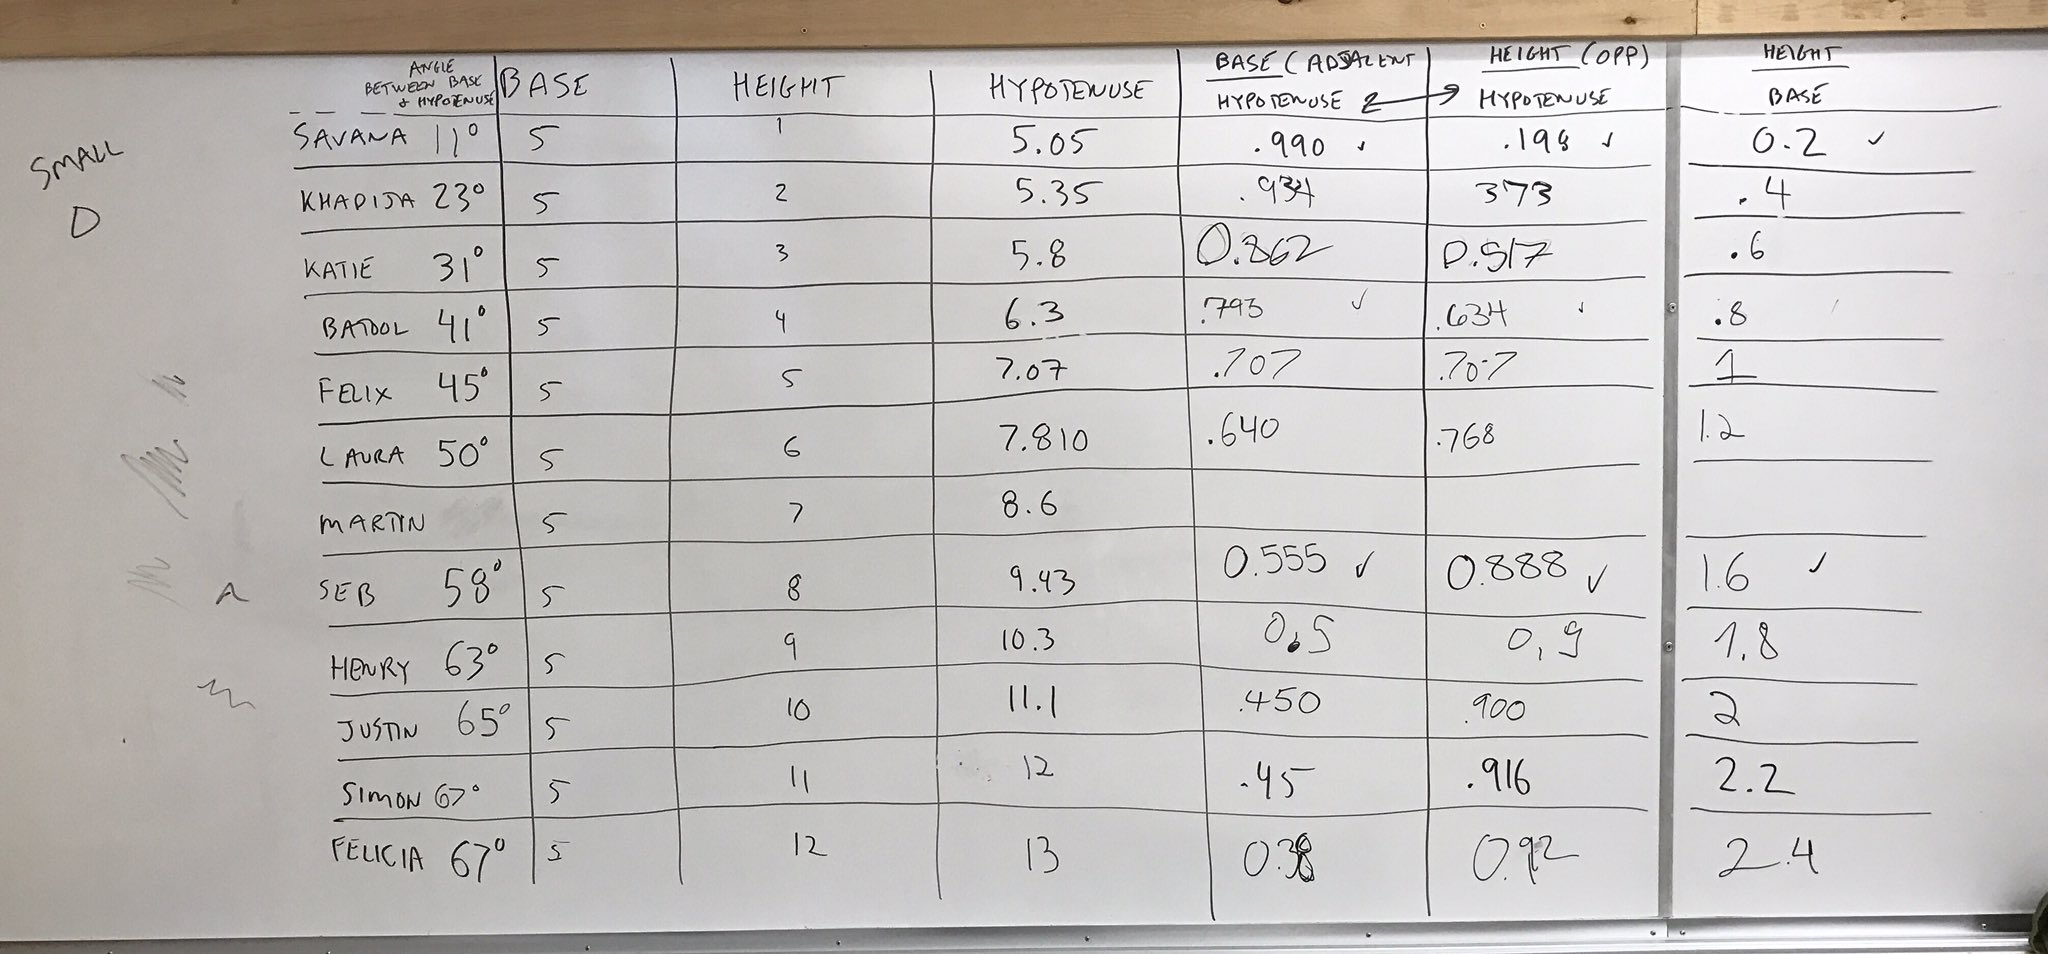 ANGLE BETWEEN BASE & HYPOTENUSE BASE HEIGHT HYPOTENUSE BASE (ADJACENT / HYPOTENUSE HEIGHT (OPP) / HYPOTENUSE HEIGHT / BASE
SAVANA 11° 5 1 5.05 .990 ✓ .198 ✓ 0.2 ✓
SMALL
D
KHADIJA 23° 5 2 5.35 .934 373 .4
KATIE 31° 5 3 5.8 0.862 0.517 .6
BATOOL 41° 5 4 6.3 .793 ✓ .634 ✓ .8
FELIX 45° 5 5 7.07 .707 .707 1
LAURA 50° 5 6 7.810 .640 .768 1.2
MARTIN 5 7 8.6
SEB 58° 5 8 9.43 0.555 ✓ 0.888 ✓ 1.6 ✓
HENRY 63° 5 9 10.3 0.5 0,9 1.8
JUSTIN 65° 5 10 11.1 .450 .900 2
SIMON 67° 5 11 12 .45 .916 2.2
FELICIA 67° 5 12 13 0.38 0.92 2.4